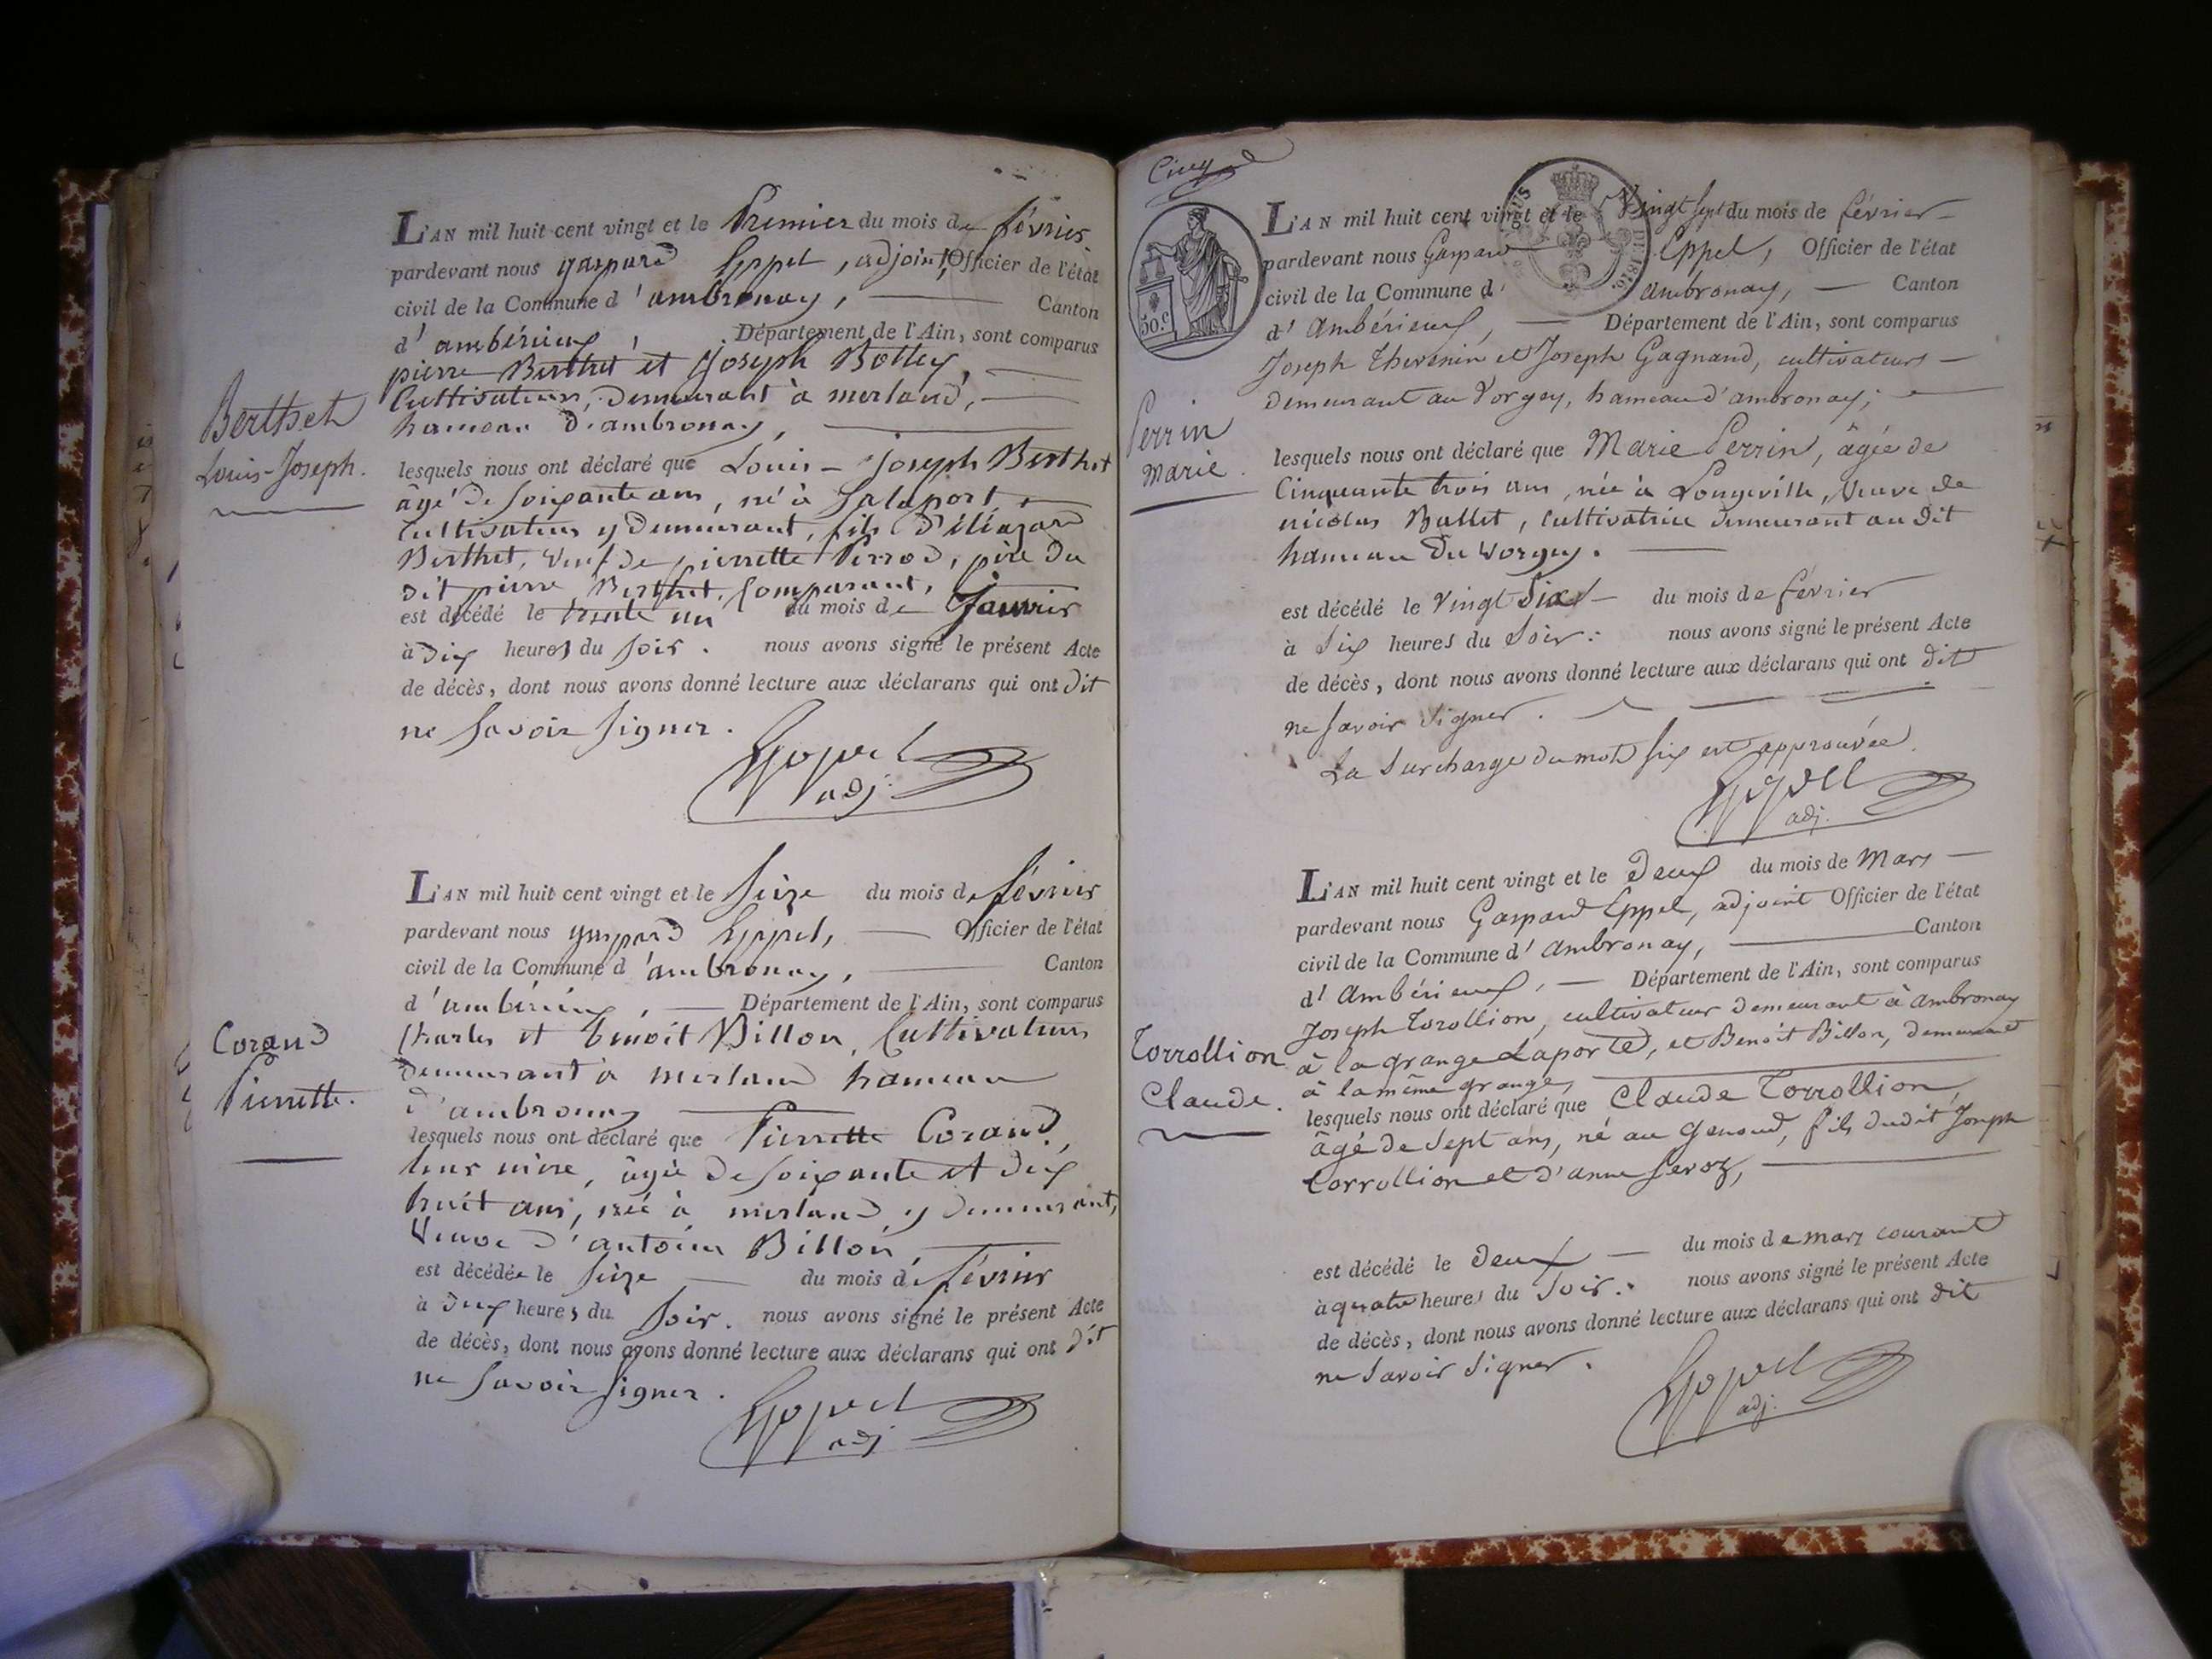 L'AN mil huit cent vingt et le Premier du mois de février
pardevant nous gaspard Eppel, adjoint, Officier de l'état
civil de la Commune d'ambronay, Canton
d'ambérieux, Département de l'Ain, sont comparus
pierre Berthet et Joseph Bottey,
Cultivateurs, demeurant à merland,
hameau d'ambronay,
Berthet
Louis-Joseph.
lesquels nous ont déclaré que Louis-Joseph Berthet
âgé de soixante ans, né à Salaport,
Cultivateur y demeurant, fils d'éléazard
Berthet, veuf de pierrette Perrod, père du
dit pierre Berthet, Comparant,
est décédé le trente un du mois de Janvier
à dix heures du soir. nous avons signé le présent Acte
de décès, dont nous avons donné lecture aux déclarans qui ont dit
ne savoir signer.
Eppel
adj.
L'AN mil huit cent vingt et le seize du mois de février
pardevant nous gaspard Eppel, Officier de l'état
civil de la Commune d'ambronay, Canton
d'ambérieux, Département de l'Ain, sont comparus
Charles et benoit Billon, Cultivateurs
demeurant à merland hameau
d'ambronay
Corand
Pierrette.
lesquels nous ont déclaré que Pierrette Corand,
leur mère, âgée de soixante et dix
huit ans, née à merland y demeurant,
Veuve d'antoine Billon,
est décédée le seize du mois de février
à deux heures du soir. nous avons signé le présent Acte
de décès, dont nous avons donné lecture aux déclarans qui ont dit
ne savoir signer.
Eppel
adj
Cinq
50.c
DE 1816
L'AN mil huit cent vingt et le Vingt sept du mois de février
pardevant nous Gaspard Eppel, Officier de l'état
civil de la Commune d'ambronay, Canton
d'Ambérieux, Département de l'Ain, sont comparus
Joseph Thevenin et Joseph Gagnand, cultivateurs
demeurant au Vorgey, hameau d'ambronay;
Perrin
Marie.
lesquels nous ont déclaré que Marie Perrin, âgée de
Cinquante trois ans, née à Longeville, Veuve de
nicolas Ballet, Cultivatrice demeurant au dit
hameau du Vorgey.
est décédé le Vingt Six du mois de février
à Six heures du Soir. nous avons signé le présent Acte
de décès, dont nous avons donné lecture aux déclarans qui ont dit
ne savoir signer.
La Surcharge du mot six est approuvée.
Eppel
adj.
L'AN mil huit cent vingt et le deux du mois de Mars
pardevant nous Gaspard Eppel, adjoint Officier de l'état
civil de la Commune d'ambronay, Canton
d'Ambérieux, Département de l'Ain, sont comparus
Joseph Torollion, cultivateur demeurant à ambronay
à la grange Laporte, et Benoît Billon, demeurant
à la même grange,
Torrollion
Claude.
lesquels nous ont déclaré que Claude Torrollion
âgé de Sept ans, né au Genoud, fils dudit Joseph
Torrollion et d'anne Servoz,
est décédé le deux du mois de mars courant
à quatre heures du Soir. nous avons signé le présent Acte
de décès, dont nous avons donné lecture aux déclarans qui ont dit
ne savoir signer.
Eppel
adj.